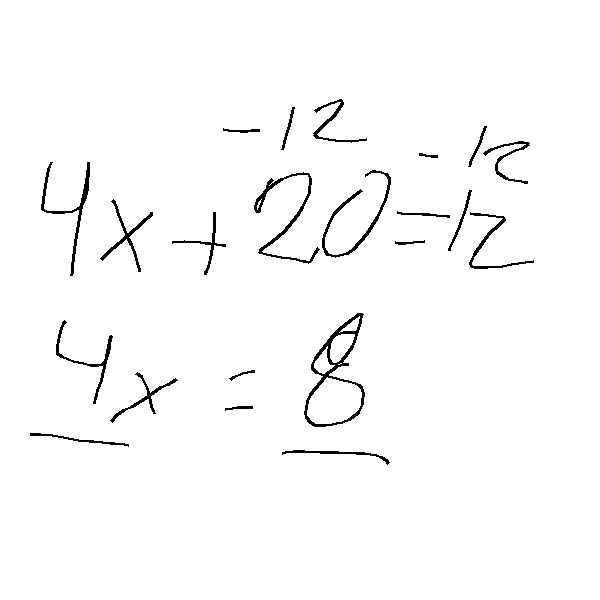 -12 -12
4x+20=12
4x = 8